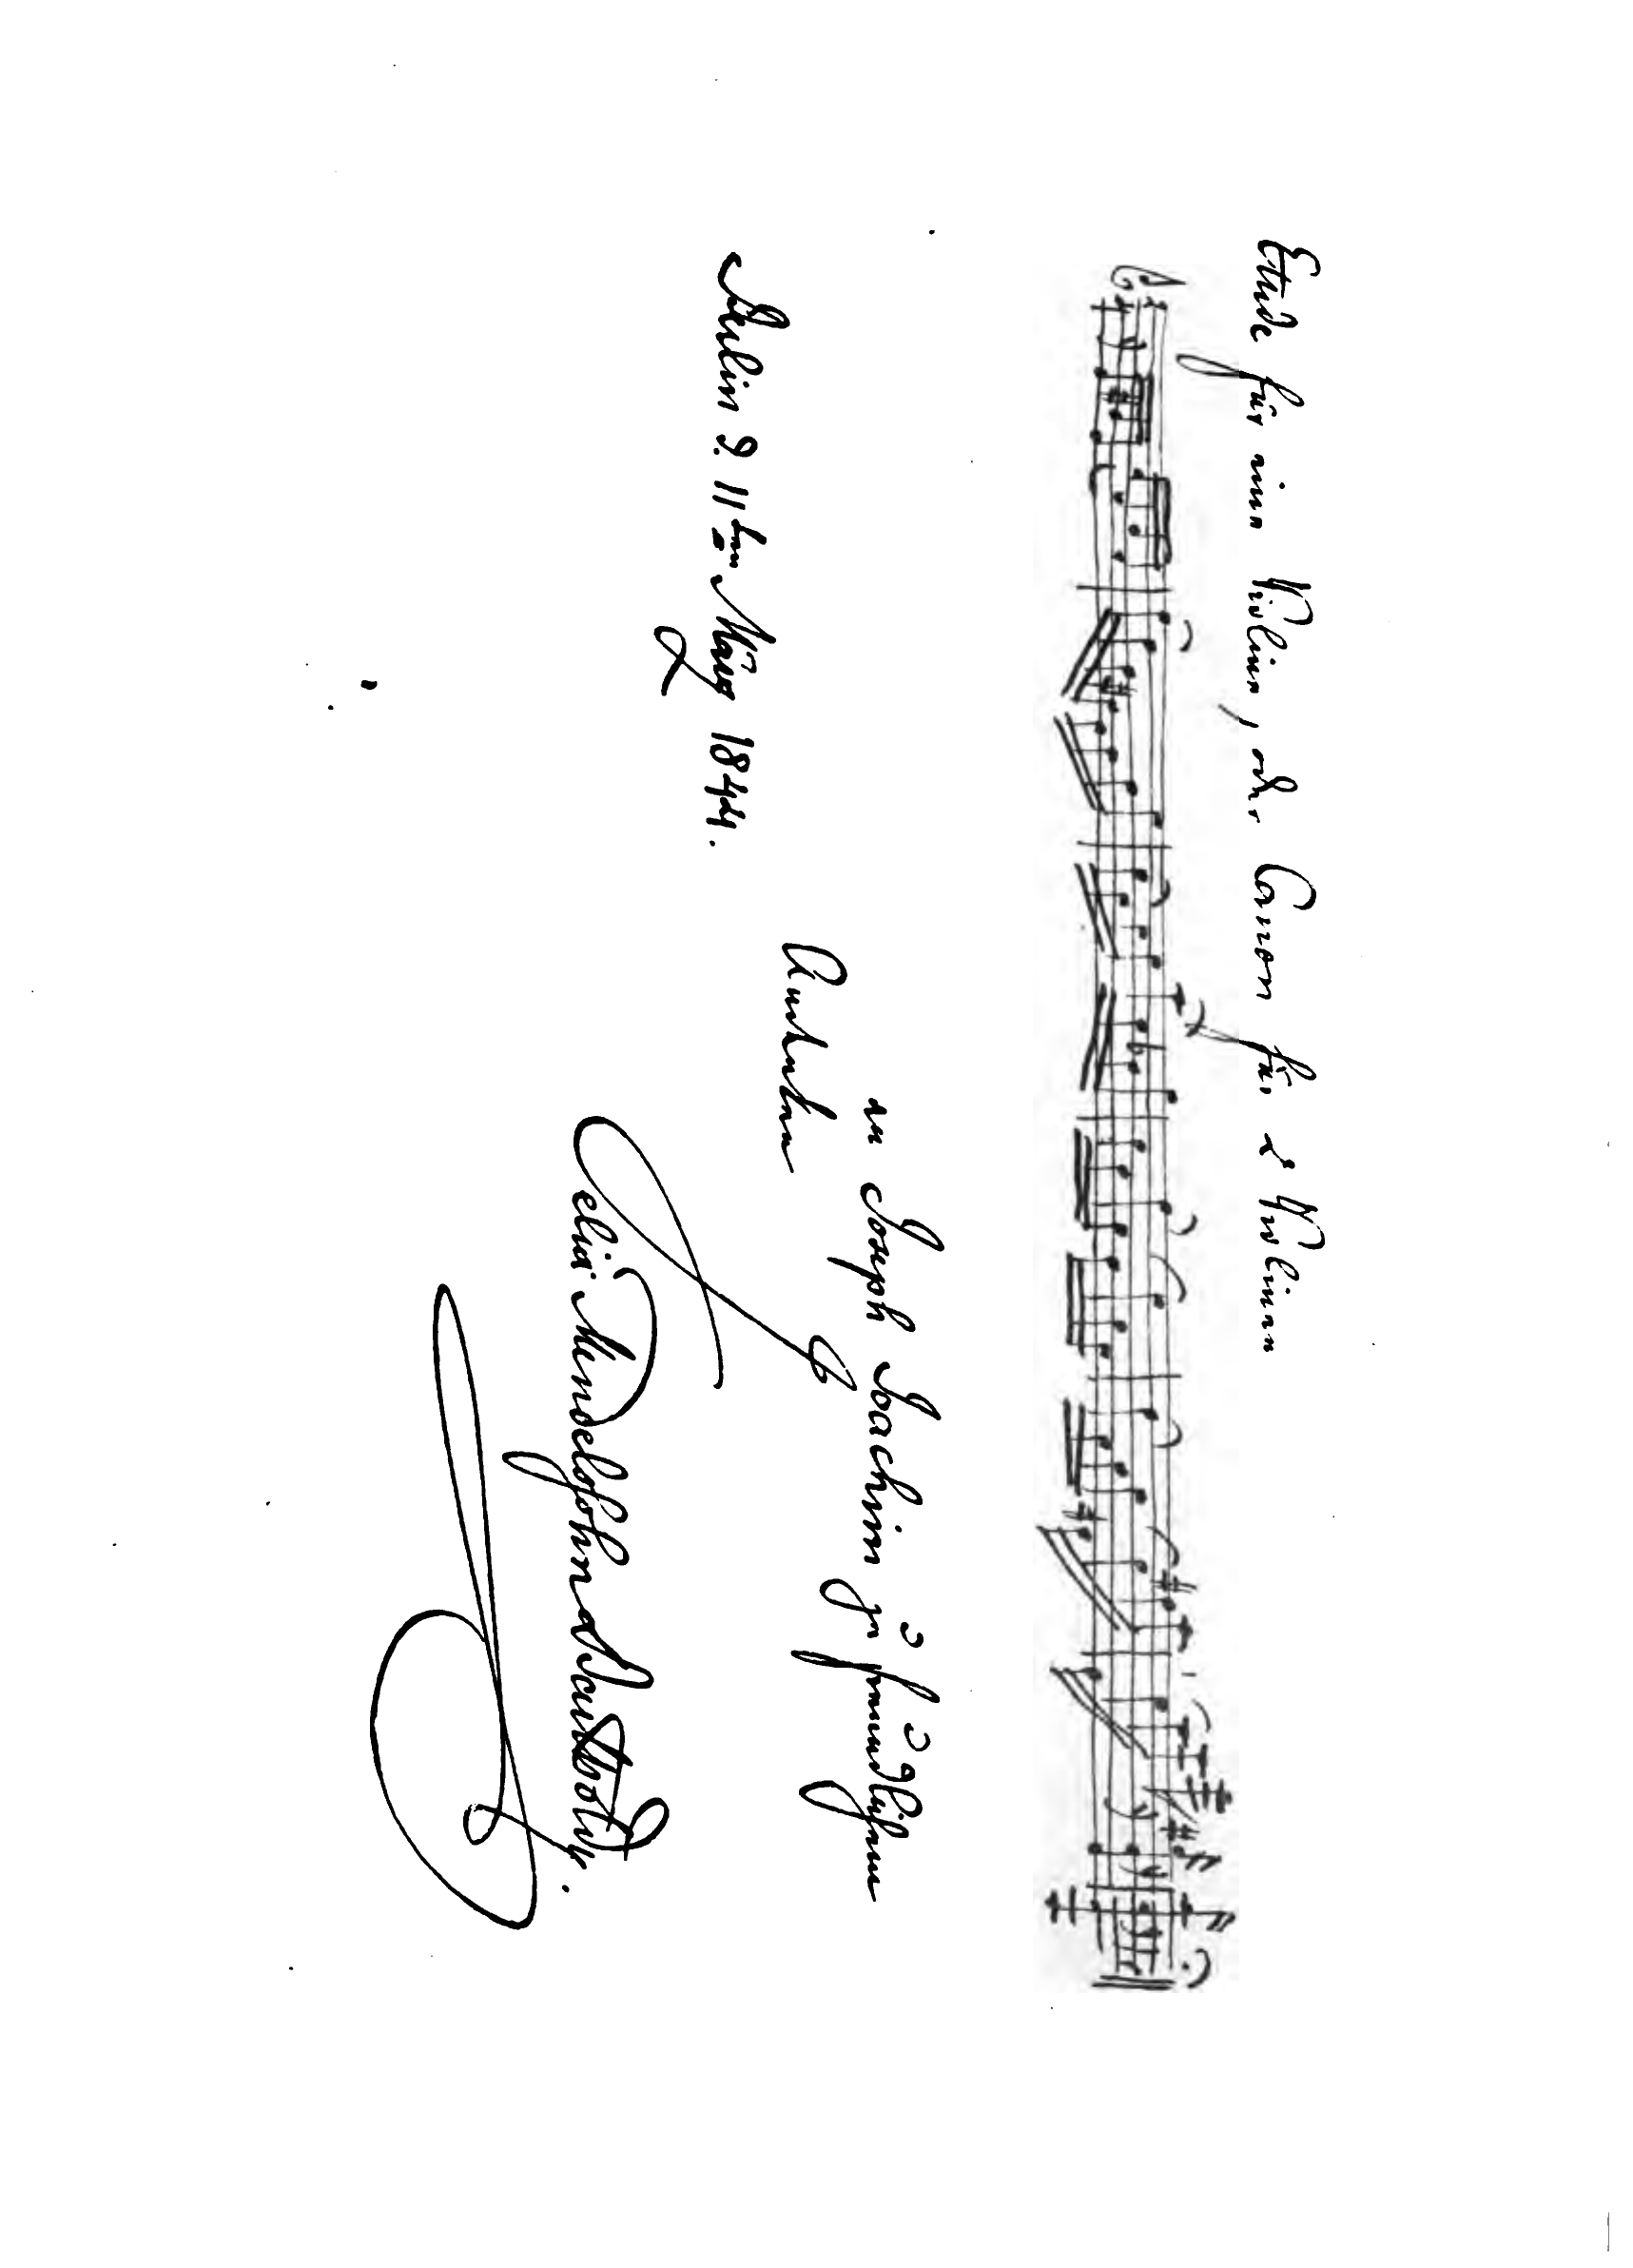 Etude für eine Violine, oder Canon für 2 Violinen
an Joseph Joachim zu freundlichem
Andenken
Berlin d. 11ten März 1844.
Felix Mendelssohn Bartholdy.